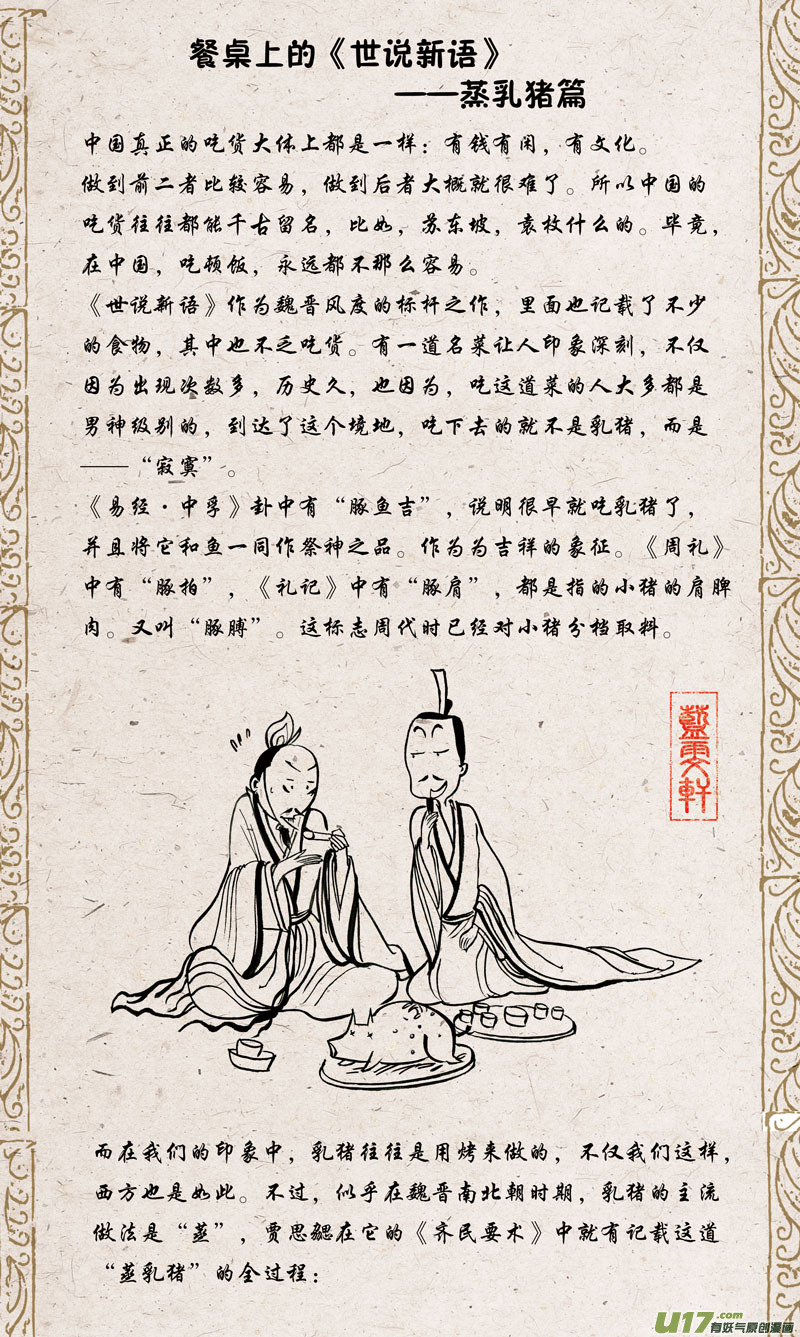 餐桌上的《世说新语》
——蒸乳猪篇
中国真正的吃货大体上都是一样：有钱有闲，有文化。
做到前二者比较容易，做到后者大概就很难了。所以中国的
吃货往往都能千古留名，比如，苏东坡，袁枚什么的。毕竟，
在中国，吃顿饭，永远都不那么容易。
《世说新语》作为魏晋风度的标杆之作，里面也记载了不少
的食物，其中也不乏吃货。有一道名菜让人印象深刻，不仅
因为出现次数多，历史久，也因为，吃这道菜的人大多都是
男神级别的，到达了这个境地，吃下去的就不是乳猪，而是
——“寂寞”。
《易经·中孚》卦中有“豚鱼吉”，说明很早就吃乳猪了，
并且将它和鱼一同作祭神之品。作为为吉祥的象征。《周礼》
中有“豚拍”，《礼记》中有“豚肩”，都是指的小猪的肩脾
肉。又叫“豚膊”。这标志周代时已经对小猪分档取料。
藍雲文軒
而在我们的印象中，乳猪往往是用烤来做的，不仅我们这样，
西方也是如此。不过，似乎在魏晋南北朝时期，乳猪的主流
做法是“蒸”，贾思勰在它的《齐民要术》中就有记载这道
“蒸乳猪”的全过程：
U17.com
有妖气原创漫画